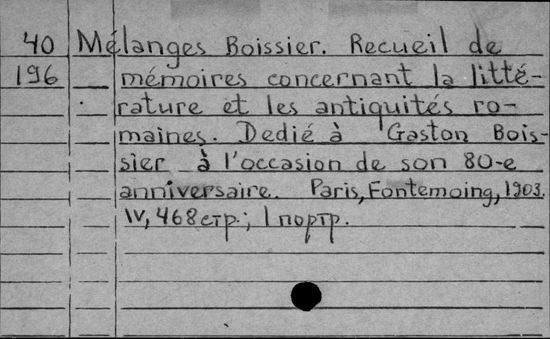 40 Mélanges Boissier. Recueil de
196 mémoires concernant la litté-
rature et les antiquités ro-
maines. Dedié à Gaston Bois-
sier à l'occasion de son 80-e
anniversaire. Paris, Fontemoing, 1903.
IV, 468 стр.; 1 портр.